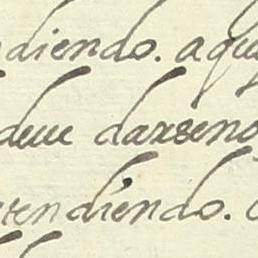 diendo. aqu
deue darseno
tendiendo.